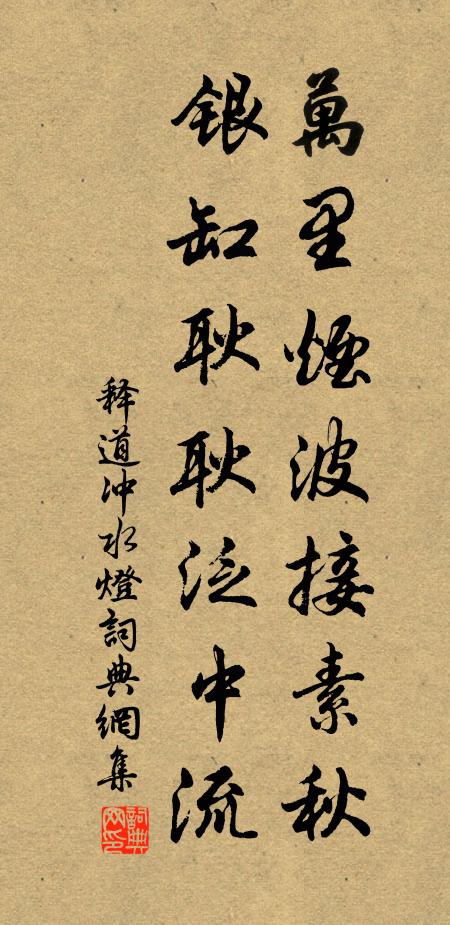 萬里煙波接素秋
銀缸耿耿泛中流
释道冲水燈詞典網集
詞典网印